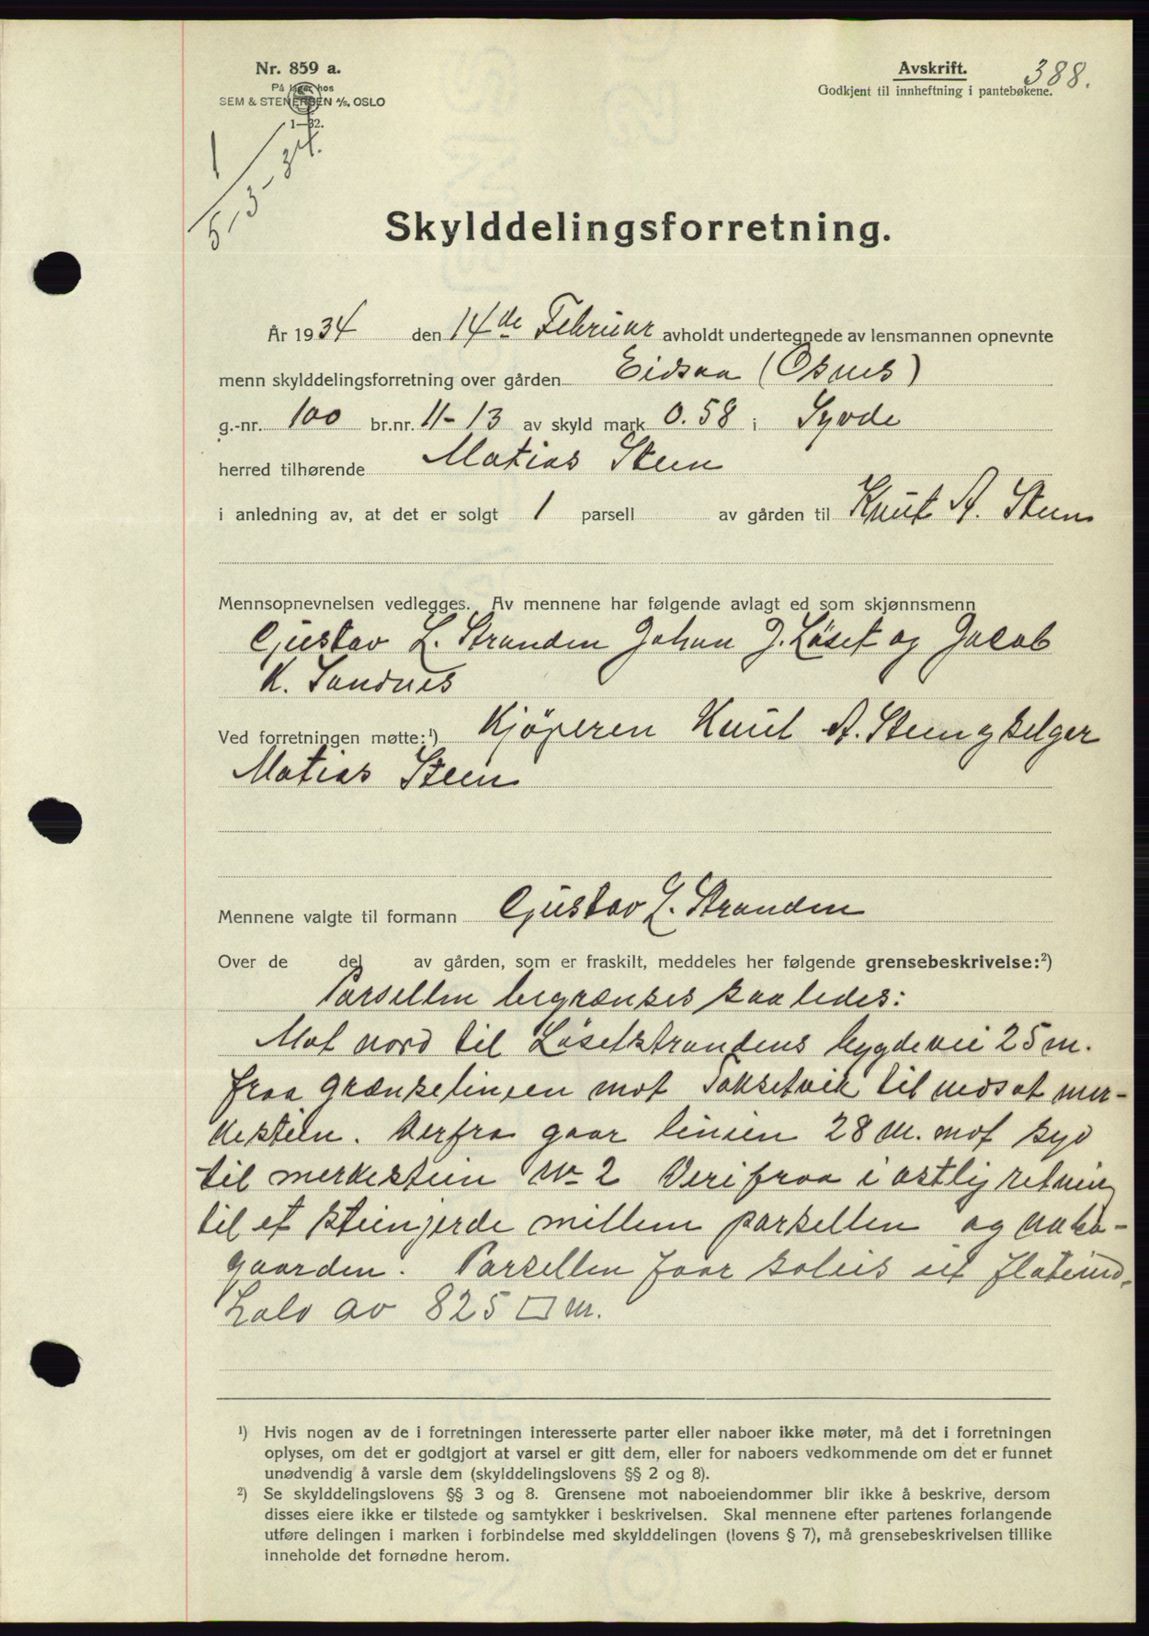 Nr. 859 a.
På lager hos
SEM & STENERSEN A/S, OSLO
1—32.
Avskrift.
Godkjent til innheftning i pantebøkene.
388.
1
5-3-34.
Skylddelingsforretning.
År 1934 den 14de Februar avholdt undertegnede av lensmannen opnevnte
menn skylddelingsforretning over gården Eidsaa (Osnes)
g.-nr. 100 br.nr. 11-13 av skyld mark 0.58 i Syvde
herred tilhørende Matias Steen
i anledning av, at det er solgt 1 parsell av gården til Knut A. Steen
Mennsopnevnelsen vedlegges. Av mennene har følgende avlagt ed som skjønnsmenn
Gustav L. Stranden Johan J. Løset og Jacob
K. Sandnes
Ved forretningen møtte:¹) Kjøperen Knut A. Steen og selger
Matias Steen
Mennene valgte til formann Gustav L. Stranden
Over de del av gården, som er fraskilt, meddeles her følgende grensebeskrivelse:²)
Parsellen begrænses saaledes:
Mot nord til Løsetstrandens bygdevei 25 m.
fraa grænselinien mot Saksetvik til nedsat mer-
kestein. Derfra gaar linien 28 m. mot syd
til merkestein No 2 Derifraa i ostlig retning
til et steingjerde millem parsellen og nabo-
gaarden. Parsellen faar soleis eit flateind-
hold av 825 □ m.
¹) Hvis nogen av de i forretningen interesserte parter eller naboer ikke møter, må det i forretningen
oplyses, om det er godtgjort at varsel er gitt dem, eller for naboers vedkommende om det er funnet
unødvendig å varsle dem (skylddelingslovens §§ 2 og 8).
²) Se skylddelingslovens §§ 3 og 8. Grensene mot naboeiendommer blir ikke å beskrive, dersom
disses eiere ikke er tilstede og samtykker i beskrivelsen. Skal mennene efter partenes forlangende
utføre delingen i marken i forbindelse med skylddelingen (lovens § 7), må grensebeskrivelsen tillike
inneholde det fornødne herom.